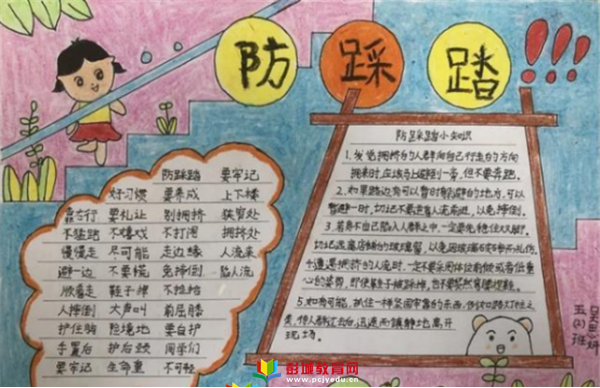 防踩踏!!!
防踩踏 要牢记
好习惯 要养成 上下楼
靠右行 要礼让 别拥挤 狭窄处
不猛跑 不嬉戏 不打闹 拥挤处
慢慢走 尽可能 走边缘 人流来
避一边 不要慌 免摔倒 陷人流
顺着走 鞋子掉 不捡拾
人摔倒 大声叫 前屈膝
护住胸 险境地 要自护
手置后 护后颈 同学们
要牢记 生命重 不可轻
防踩踏小知识
1.发觉拥挤的人群向自己行走的方向
拥来时,应该马上避到一旁,但不要奔跑。
2.如果路边有可以暂时躲避的地方,可以
暂避一时,切记不要逆着人流前进,以免摔倒。
3.若身不由己陷入人群之中,一定要先稳住双脚。
切记远离店铺的玻璃窗,以免因玻璃破碎而扎伤。
4.遭遇拥挤的人流时,一定不要采用体位前倾或者低重
心的姿势,即使鞋子被踩掉,也不要贸然弯腰提鞋。
5.如有可能,抓住一样坚固牢靠的东西,例如路灯柱之
类,待人群过去后,迅速而镇静地离开
现场。
五(2)班
彭埠教育网
www.pcjyedu.cn